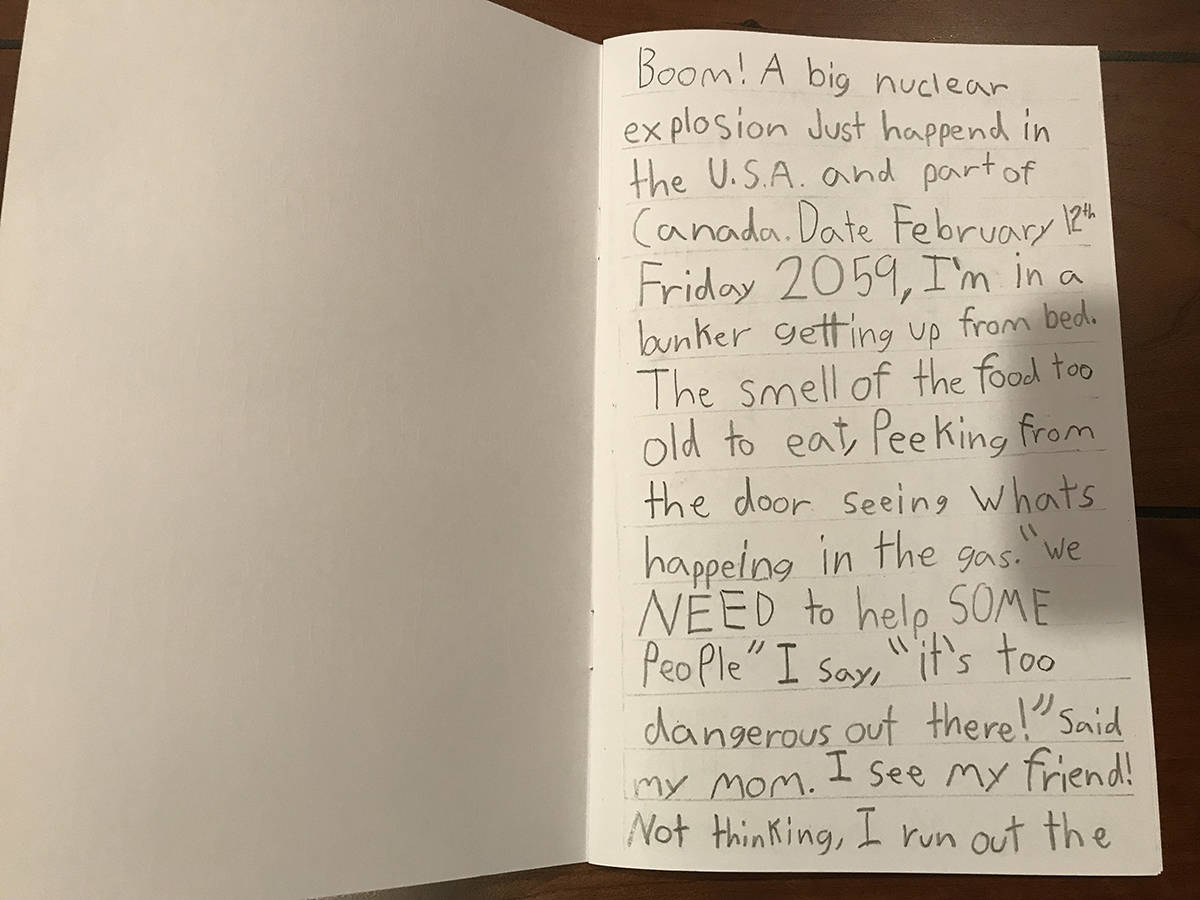 Boom! A big nuclear
explosion Just happend in
the U.S.A. and part of
Canada. Date February 12th
Friday 2059, I'm in a
bunker getting up from bed.
The smell of the food too
old to eat, Peeking from
the door seeing whats
happeing in the gas. "we
NEED to help SOME
People" I say, "it's too
dangerous out there!" Said
my mom. I see my friend!
Not thinking, I run out the